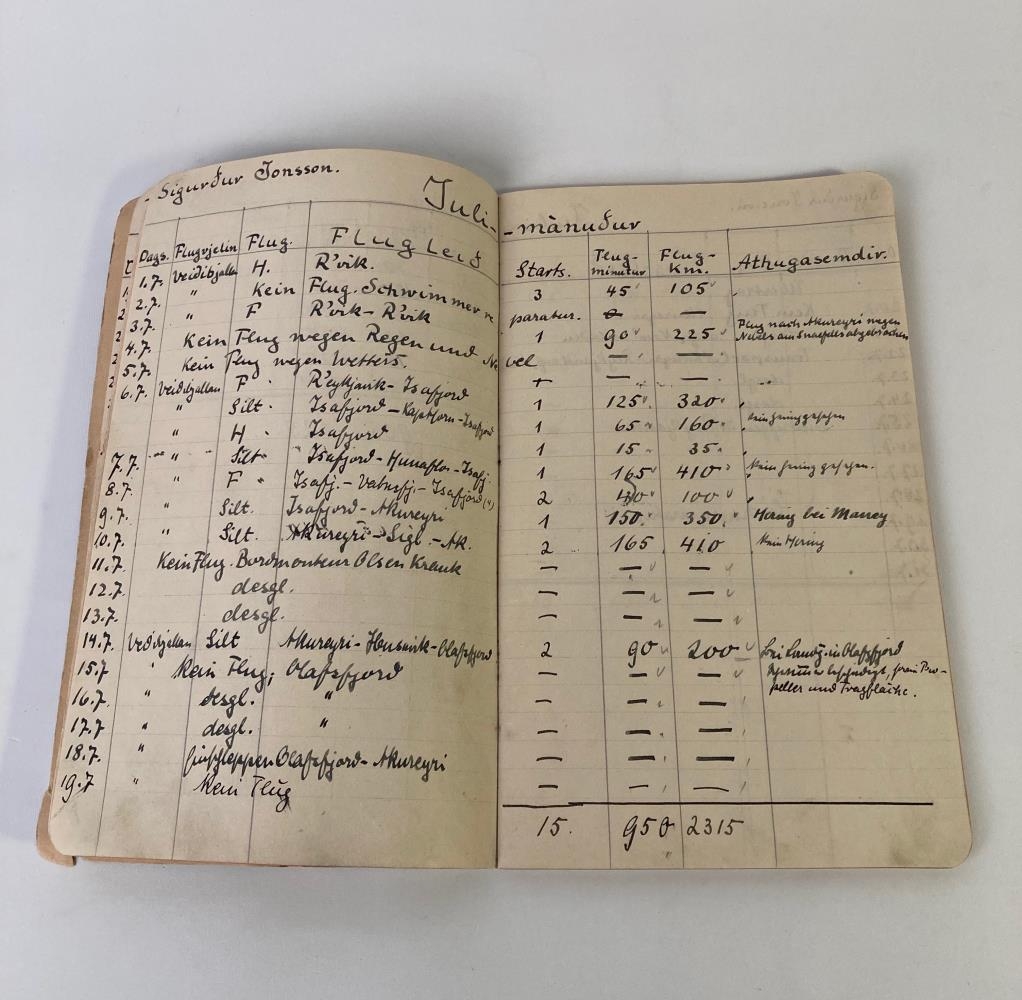 Sigurður Jonsson.
Juli-mànuður
Dags. Flugvjelin Flug. Flugleið Starts. Flug-minutur Flug-Km. Athugasemdir.
1.7. Veiðibjallan H. R'vik. 3 45 105
2.7. " Kein Flug. Schwimmerreparatur. — —
3.7. " F R'vik - R'vik 1 90 225 Flug nach Akureyri wegen
Nebels am Snæfells abgebrochen
4.7. Kein Flug wegen Regen und Nebel — —
5.7. Kein Flug wegen Wetters. — —
6.7. Veiðibjallan F R'eykjavik - Isafjord 1 125 320
" Silt. Isafjord - - Isafjord 1 65 160 Kein Hering gesehen
" H Isafjord 1 15 35
7.7. " Silt Isafjord - Hunaflos - Isafj. 1 165 410 Kein Hering gesehen.
8.7. " F Isafj. - Vatnsfj. - Isafjord 2 100
9.7. " Silt. Isafjord - Akureyri 1 150 350 Hering bei
10.7. " Silt. Akureyri - Sigl. - Ak. 2 165 410 Kein Hering
11.7. Kein Flug. Bordmonteur Olsen Krank — — —
12.7. desgl. — — —
13.7. desgl. — — —
14.7. Veiðibjallan Silt Akureyri - Husavik - Olafsfjord 2 90 200 Bei Landg. in Olafsfjord
15.7 " Kein Flug; Olafsfjord — — — beschädigt,
peller und Tragfläche.
16.7. " desgl. " — — —
17.7 " desgl. " — — —
18.7. " Olafsfjord - Akureyri — — —
19.7 " Kein Flug — — —
15. 950 2315